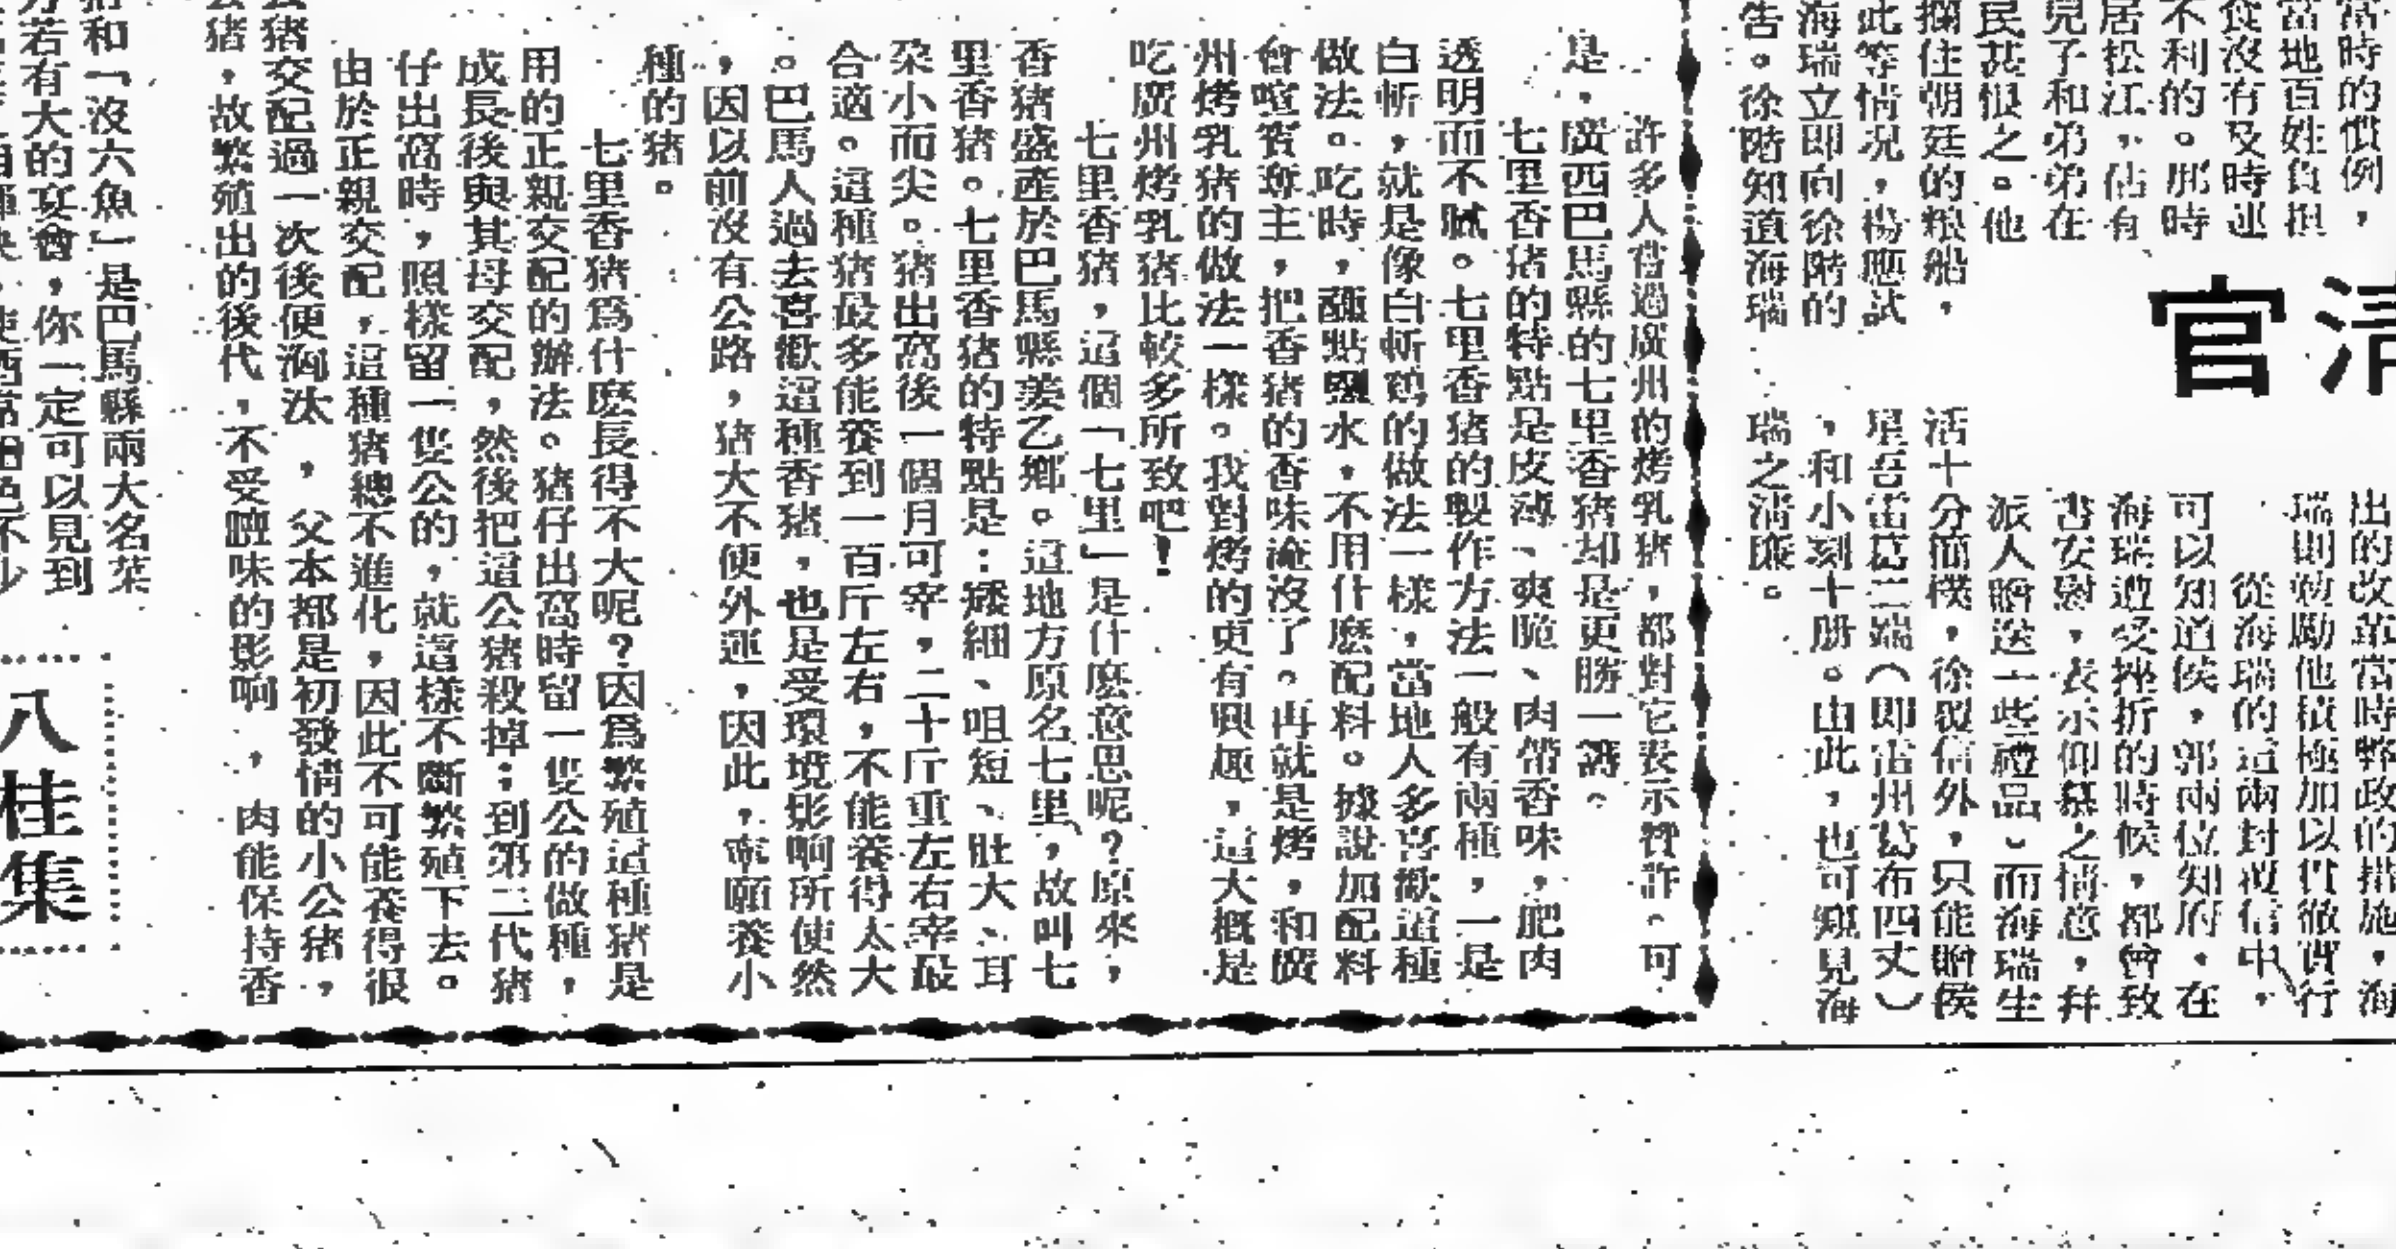 當時的慣例，
當地百姓負担
食沒有及時运
不利的。那時
居松江，佔有
兒子和弟弟在
民甚恨之。他
攔住朝廷的粮船，
此等情况，楊應試
海瑞立即向徐階的
告。徐階知道海瑞
清
官
出的改革當時弊政的措施，海
瑞則勉勵他積極加以貫徹實行
從海瑞的這兩封覆信中，
可以知道侯，郭兩位知府，在
海瑞遭受挫折的時候，都曾致
書安慰，表示仰慕之情意，幷
派人贈送一些禮品）而海瑞生
活十分簡樸，徐覆信外，只能贈侯
星吾雷葛二端（即雷州葛布四丈）
，和小刻十册。由此，也可窺見海
瑞之清廉。
許多人嘗過廣州的烤乳猪，都對它表示贊許。可
是，廣西巴馬縣的七里香猪却是更勝一籌。
七里香猪的特點是皮薄、爽脆、肉帶香味，肥肉
透明而不膩。七里香猪的製作方法一般有兩種，一是
白斬，就是像白斬鷄的做法一樣，當地人多喜歡這種
做法。吃時，蘸點鹽水，不用什麽配料。據說加配料
會喧賓奪主，把香猪的香味淹沒了。再就是烤，和廣
州烤乳猪的做法一樣。我對烤的更有興趣，這大概是
吃廣州烤乳猪比較多所致吧！
七里香猪，這個「七里」是什麽意思呢？原來，
香猪盛產於巴馬縣羌乙鄉。這地方原名七里，故叫七
里香猪。七里香猪的特點是：矮細、咀短、肚大、耳
朶小而尖。猪出窩後一個月可宰，二十斤重左右宰最
合適。這種猪最多能養到一百斤左右，不能養得太大
。巴馬人過去喜歡這種香猪，也是受環境影响所使然
，因以前沒有公路，猪大不便外運，因此，寧願養小
種的猪。
七里香猪爲什麽長得不大呢？因爲繁殖這種猪是
用的正親交配的辦法。猪仔出窩時留一隻公的做種，
成長後與其母交配，然後把這公猪殺掉；到第二代猪
仔出窩時，照樣留一隻公的，就這樣不斷繁殖下去。
由於正親交配，這種猪總不進化，因此不可能養得很
公猪交配過一次後便淘汰，父本都是初發情的小公猪，
公猪，故繁殖出的後代，不受羶味的影响，肉能保持香
猪和「沒六魚」是巴馬縣兩大名菜
若有大的宴會，你一定可以見到
八桂集